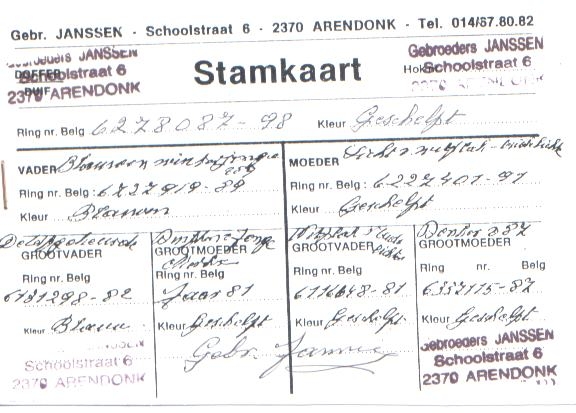 Gebr. JANSSEN - Schoolstraat 6 - 2370 ARENDONK - Tel. 014/67.80.82
JANSSEN
DOFFER
Schoolstraat 6
DUIF
2370 ARENDONK
Stamkaart
Gebroeders JANSSEN
Hok Schoolstraat 6
ARENDONK
Ring nr. Belg 6278087-98 Kleur Geschelpt
VADER
Ring nr. Belg: 6727919-89
Kleur Blauw
MOEDER
Ring nr. Belg: 6227401-91
Kleur Geschelpt
GROOTVADER
Ring nr. Belg
6131298-82
Kleur Blauw
GROOTMOEDER
Ring nr. Belg
Jaar 81
Kleur Geschelpt
GROOTVADER
Ring nr. Belg
6116648-81
Kleur Geschelpt
GROOTMOEDER
Ring nr. Belg
6352115-87
Kleur Geschelpt
Gebr. Janssen
Schoolstraat 6
2370 ARENDONK
Gebroeders JANSSEN
Schoolstraat 6
2370 ARENDONK